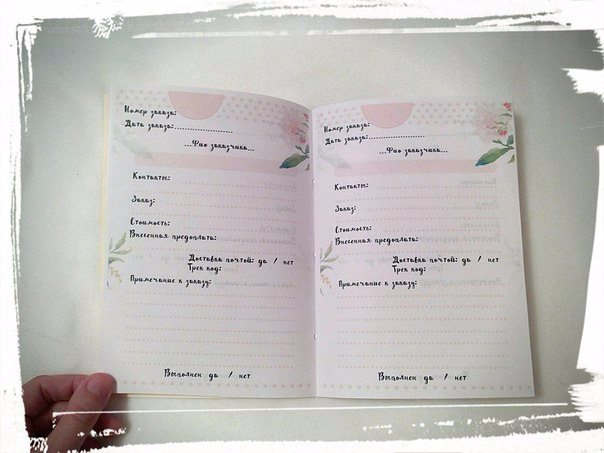 Номер заказа:
Дата заказа:....................
...Фио заказчика...
Контакты:
Заказ:
Стоимость:
Внесенная предоплата:
Доставка почтой: да / нет
Трек код:
Примечание к заказу:
Выполнен да / нет
Номер заказа:
Дата заказа:....................
...Фио заказчика...
Контакты:
Заказ:
Стоимость:
Внесенная предоплата:
Доставка почтой: да / нет
Трек код:
Примечание к заказу:
Выполнен да / нет